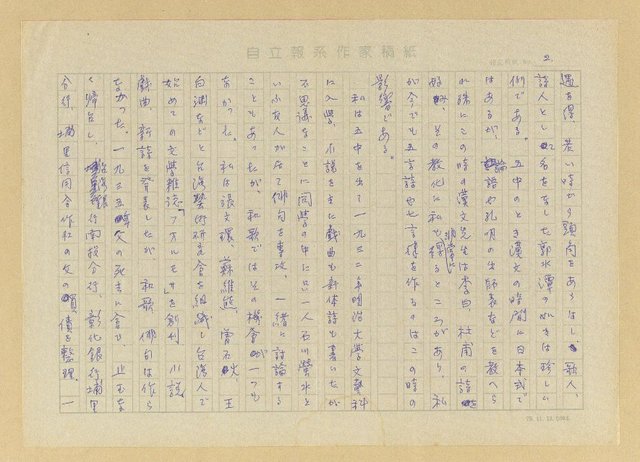 自立報系作家稿紙
2.
遇を得、若い時から頭角をあらはし、歌人、
詩人として名をなした郭水潭の如きは珍しい
例である。五中のとき漢文の時間に日本式で
はあるが、論語や孔明の出師表などを教へら
れ殊にこの時の漢文先生は李白、杜甫の詩
好み、その教化に私も非常に得るところがあり、私
が今でも五言詩や七言詩を作るのはこの時の
影響である。
私は五中を出て一九三二年明治大学文芸科
に入学、小説を主に戯曲も新体詩も書いたが
不思議なことに同学の中に只一人石川榮水と
いふ友人が居て俳句を専攻、一緒に討論する
こともあったが、和歌ではその機会が一つも
なかった。私は張文環、蘇維熊、曾石火、王
白渊などと台湾藝術研究会を組織し台湾人で
始めての文学雑誌「フオルモサ」を創刊、小説、
戯曲、新詩を発表したが、和歌、俳句は作ら
なかった。一九三五年父の死去に会ひ、止むな
く帰台し、銀行南投分行、彰化銀行埔里
分行、埔里信用合作社の父の債を整理、一